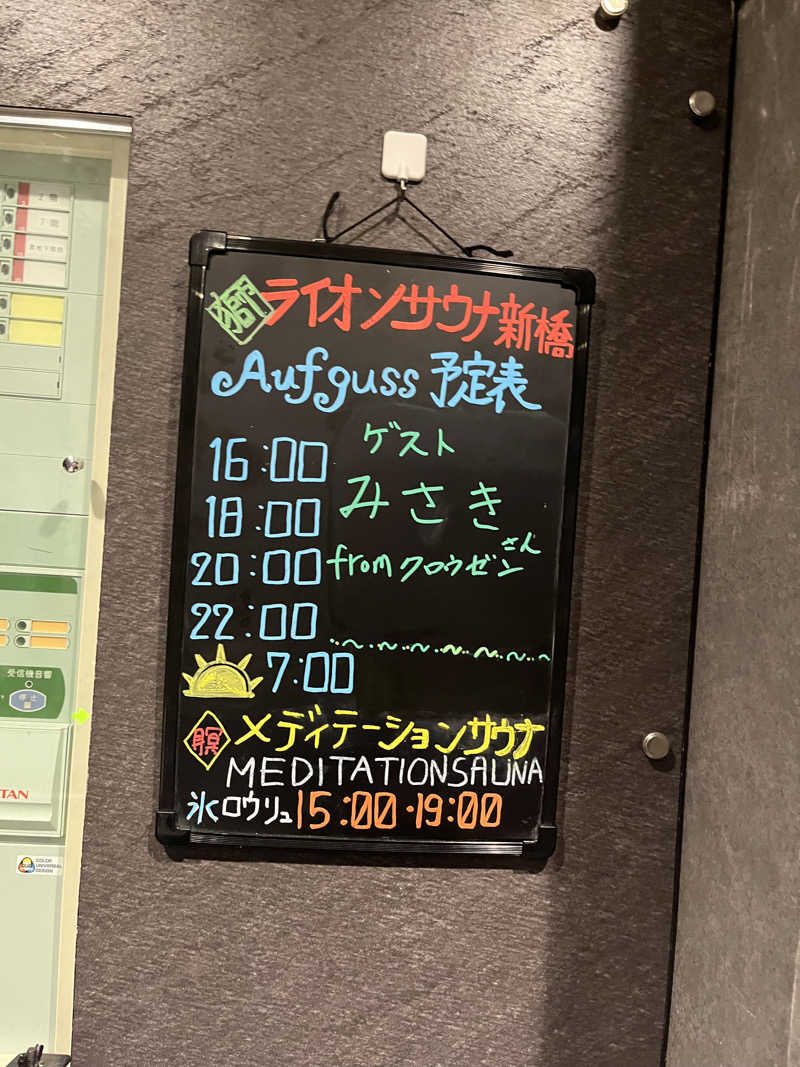 獅 ライオンサウナ新橋
Aufguss 予定表
16:00 ゲスト
18:00 みさき
さん
20:00 from クロウゼン
22:00
7:00
瞑 メディテーションサウナ
MEDITATIONSAUNA
氷ロウリュ 15:00・19:00
受信機音響
停止
TAN
COLOR
UNIVERSAL
DESIGN